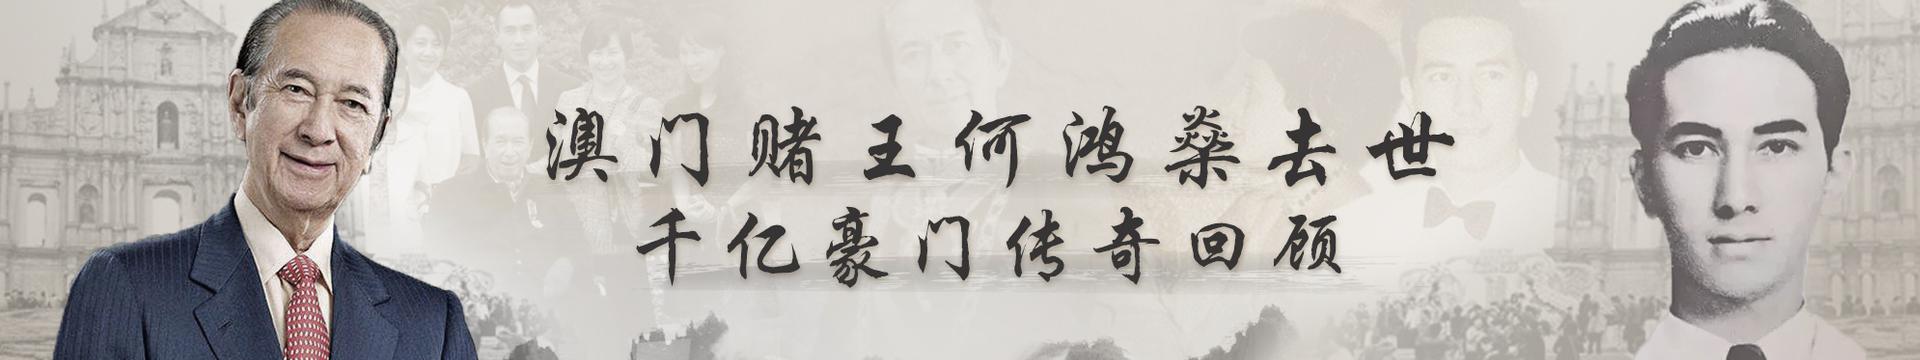 澳门赌王何鸿燊去世
千亿豪门传奇回顾